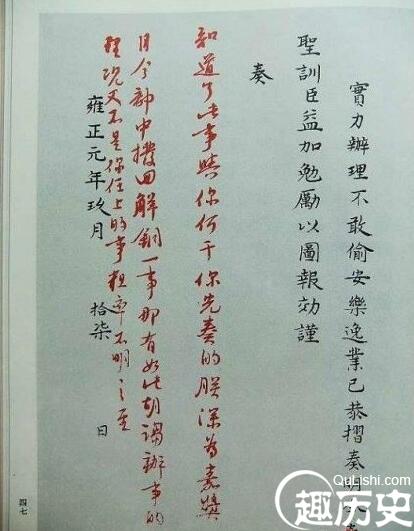 實力辦理不敢偷安樂逸業已恭摺奏明
聖訓臣益加勉勵以圖報効謹
奏
知道了此事與你何干你先奏的朕深為嘉獎
目今部中撥回解銅一事那有如此胡謅辦事的
理況又不是你任上的事粗率不明之至
雍正元年玖月 拾柒 日
四七
QuLishi.com
趣历史